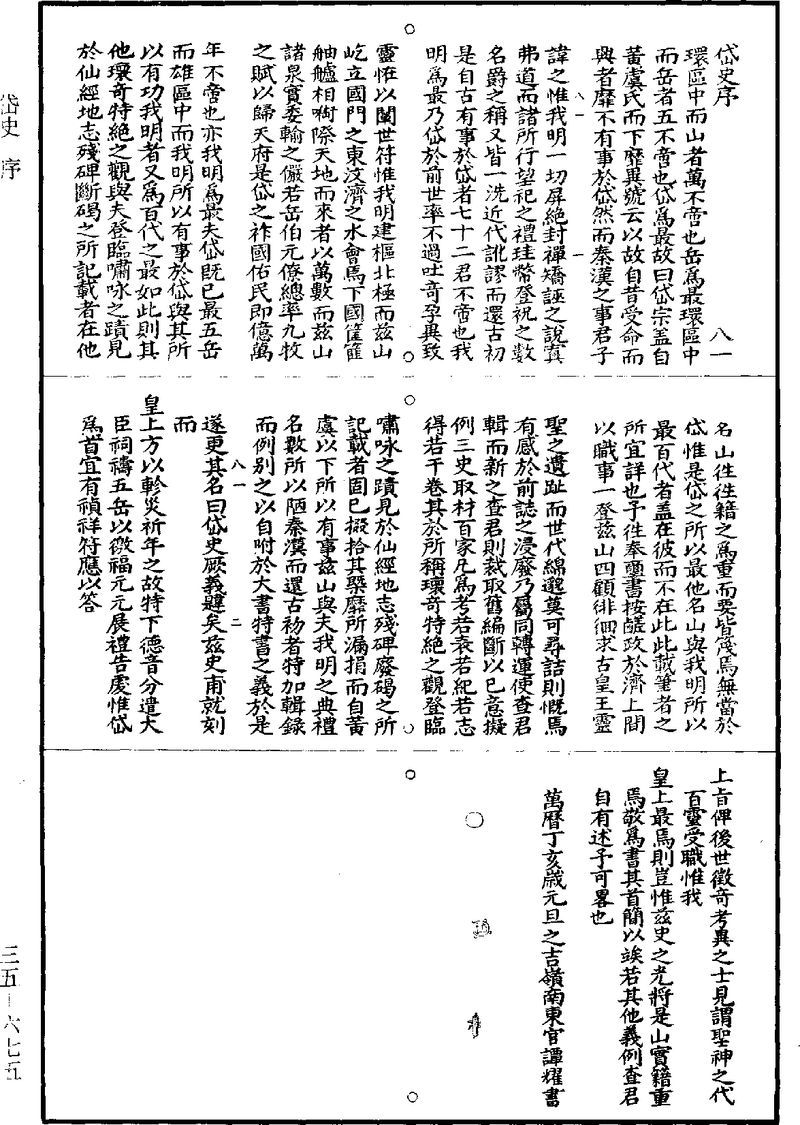 岱史序
八一
環區中而山者萬不啻也岳為最環區中
而岳者五不啻也岱為最故曰岱宗盖自
黃虞氏而下靡異號云以故自昔受命而
興者靡不有事於岱然而秦漢之事君子
八一
一
諱之惟我明一切屏絕封禪矯誣之說寘
弗道而諸所行望祀之禮珪幣登祝之數
名爵之稱又皆一洗近代訛謬而還古初
是自古有事於岱者七十二君不啻也我
明為最乃岱於前世率不過吐竒孕異致
靈恠以闖世符惟我明建樞北極而茲山
屹立國門之東汶濟之水會焉下國筐篚
舳艫相啣際天地而來者以萬數而茲山
諸泉實委輸之儼若岳伯元僚總率九牧
之賦以歸天府是岱之祚國佑民即億萬
年不啻也亦我明為最夫岱既已最五岳
而雄區中而我明所以有事於岱與其所
以有功我明者又為百代之最如此則其
他瓌奇特絕之觀與夫登臨嘯咏之蹟見
於仙經地志殘碑斷碣之所記載者在他
名山徃徃籍之為重而要皆濅焉無當於
岱惟是岱之所以最他名山與我明所以
最百代者盖在彼而不在此此載筆者之
所宜詳也予徃奉璽書按鹺政於濟上間
以職事一登茲山四顧徘徊求古皇王靈
聖之遺趾而世代綿邈莫可尋詰則慨焉
有感於前誌之浸廢乃屬同轉運使查君
輯而新之查君則裁取舊編斷以已意擬
例三史取材百家凡為考若表若紀若志
得若干卷其於所稱瓌奇特絕之觀登臨
嘯咏之蹟見於仙經地志殘碑廢碣之所
記載者固已掇拾其槩靡所漏捐而自黃
虞以下所以有事茲山與夫我明之典禮
名數所以陋秦漢而還古初者特加輯錄
而例别之以自附於大書特書之義於是
八一
二
遂更其名曰岱史厥義韙矣茲史甫就刻
而
皇上方以軫災祈年之故特下德音分遣大
臣祠禱五岳以徼福元元展禮告虔惟岱
為首宜有禎祥符應以答
上旨俾後世徵奇考異之士見謂聖神之代
百靈受職惟我
皇上最焉則豈惟茲史之光將是山實籍重
焉敬為書其首簡以竢若其他義例查君
自有述予可畧也
萬曆丁亥歲元旦之吉嶺南東官譚耀書
岱史 序
三五—六七五